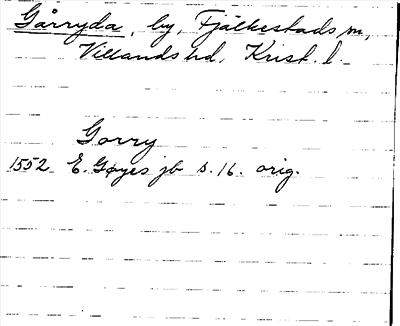 Gårryda, by, Fjälkestads sn,
Villands hd, Krist. l.
Gorry
1552 E. Gøyes jb s. 16. orig.